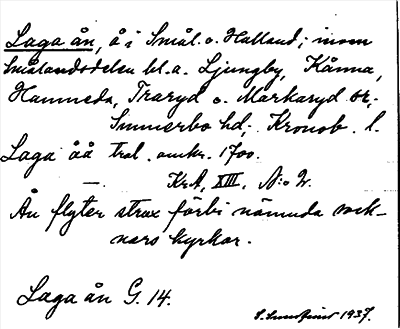 Laga ån, å i Smål. o. Halland; inom
Smålandsdelen bl.a. Ljungby, Kånna,
Hamneda, Traryd o. Markaryd sr;
Sunnerbo hd; Kronob. l.
Laga åå tral. omkr. 1700.
—. KrA, XIII, N:o 2.
Ån flyter strax förbi nämnda sock-
nars kyrkor.
Laga ån G. 14.
1937.